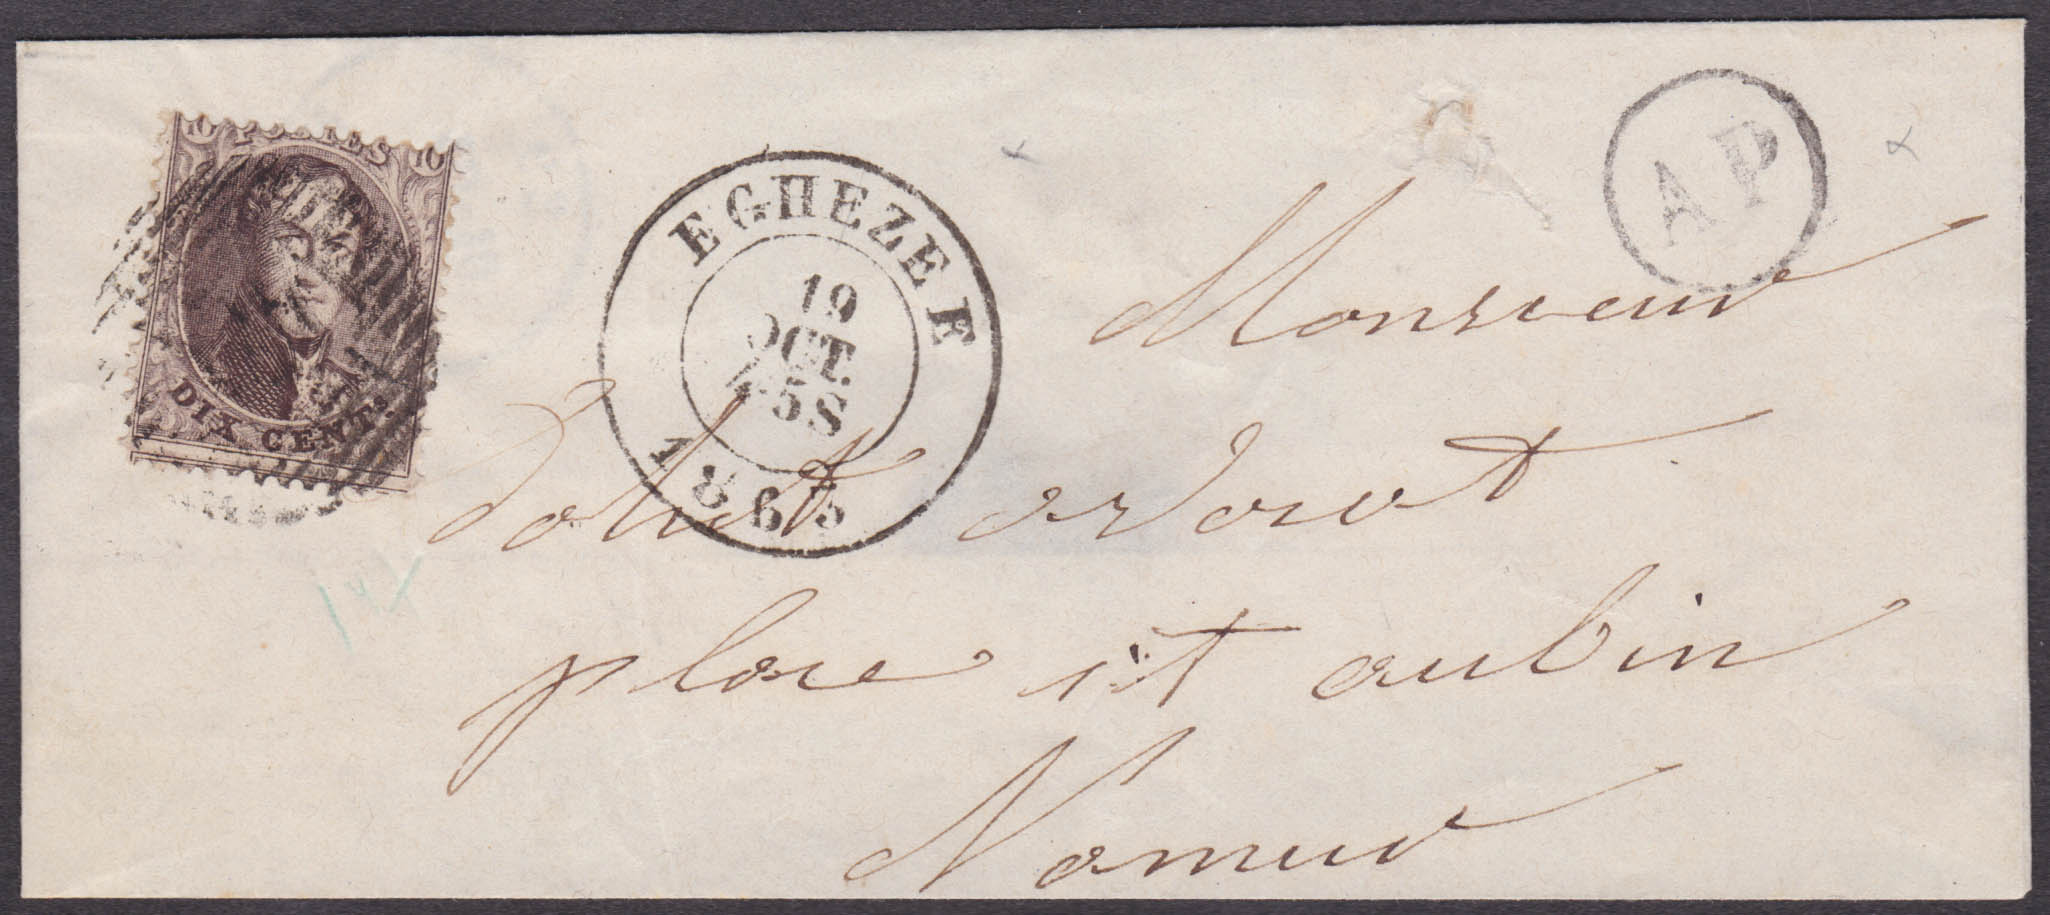 10 POSTES 10
DIX CENTS.
EGHEZEE
19
OCT.
4-5S
1865
A P
Monsieur
Dohet avocat
place st aubin
Namur